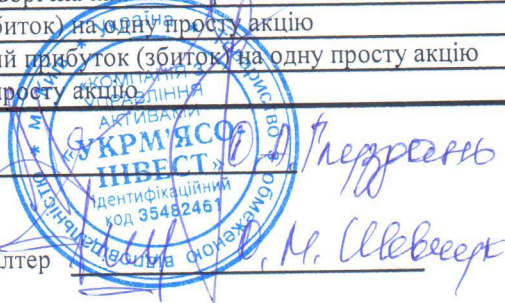 биток) на одну просту акцію
ий прибуток (збиток) на одну просту акцію
просту акцію
Україна
«КОМПАНІЯ З
УПРАВЛІННЯ
АКТИВАМИ
«УКРМ'ЯСО-
ІНВЕСТ»
Ідентифікаційний
код 35482461
обмеженою відповідальністю
лтер О. М. Шевчук